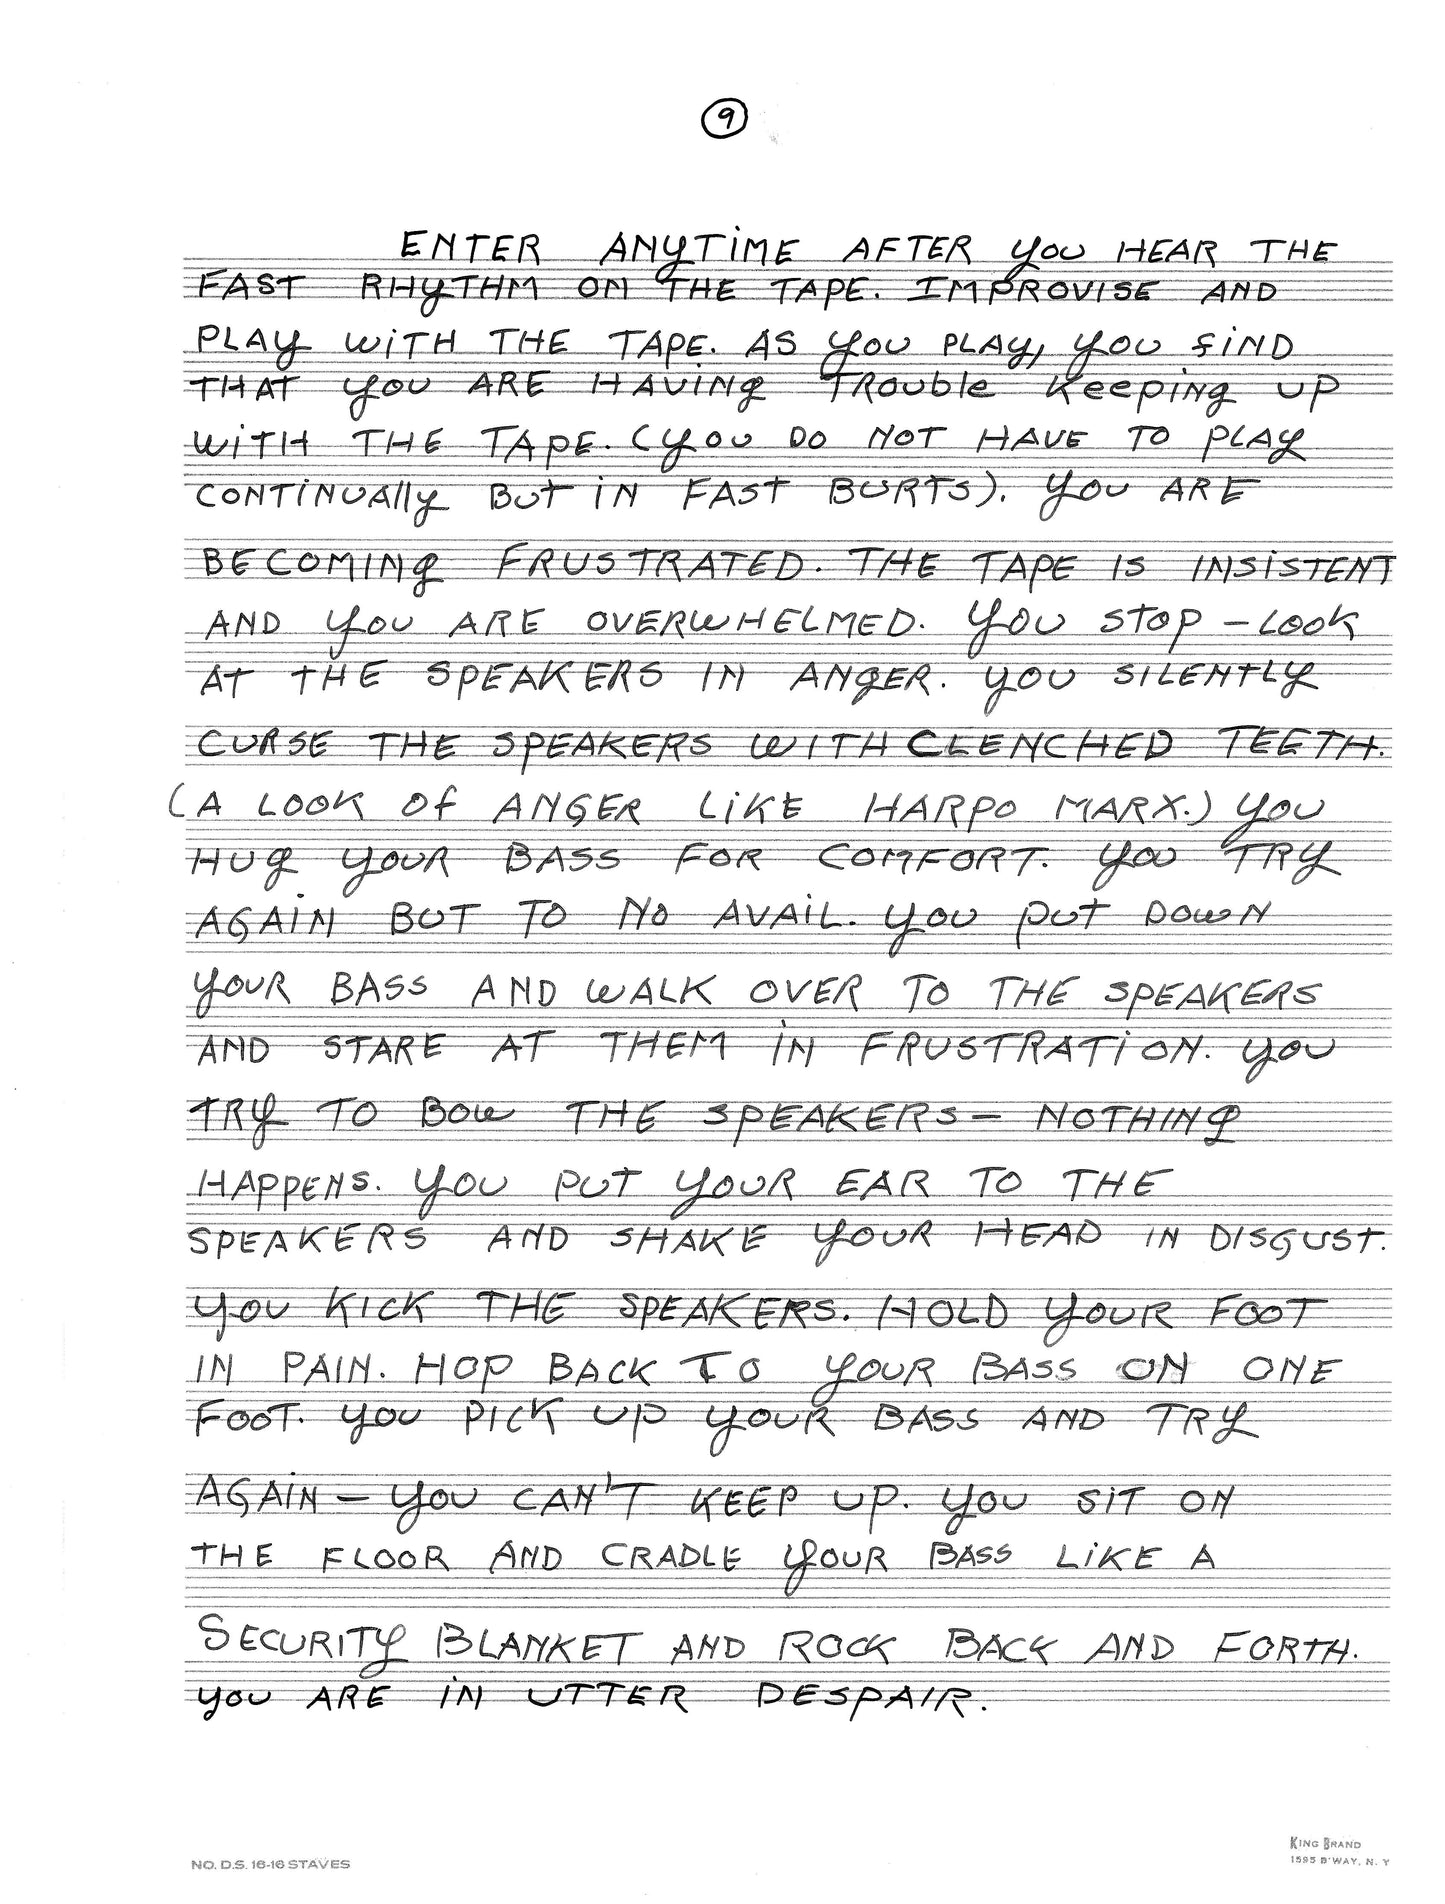 9
ENTER ANYTIME AFTER YOU HEAR THE
FAST RHYTHM ON THE TAPE. IMPROVISE AND
PLAY WITH THE TAPE. AS YOU PLAY, YOU FIND
THAT YOU ARE HAVING TROUBLE KEEPING UP
WITH THE TAPE. (YOU DO NOT HAVE TO PLAY
CONTINUALLY BUT IN FAST BURTS). YOU ARE
BECOMING FRUSTRATED. THE TAPE IS INSISTENT
AND YOU ARE OVERWHELMED. YOU STOP – LOOK
AT THE SPEAKERS IN ANGER. YOU SILENTLY
CURSE THE SPEAKERS WITH CLENCHED TEETH.
(A LOOK OF ANGER LIKE HARPO MARX.) YOU
HUG YOUR BASS FOR COMFORT. YOU TRY
AGAIN BUT TO NO AVAIL. YOU PUT DOWN
YOUR BASS AND WALK OVER TO THE SPEAKERS
AND STARE AT THEM IN FRUSTRATION. YOU
TRY TO BOW THE SPEAKERS – NOTHING
HAPPENS. YOU PUT YOUR EAR TO THE
SPEAKERS AND SHAKE YOUR HEAD IN DISGUST.
YOU KICK THE SPEAKERS. HOLD YOUR FOOT
IN PAIN. HOP BACK TO YOUR BASS ON ONE
FOOT. YOU PICK UP YOUR BASS AND TRY
AGAIN – YOU CAN'T KEEP UP. YOU SIT ON
THE FLOOR AND CRADLE YOUR BASS LIKE A
SECURITY BLANKET AND ROCK BACK AND FORTH.
YOU ARE IN UTTER DESPAIR.
NO. D.S. 16-16 STAVES
KING BRAND
1595 B'WAY, N. Y